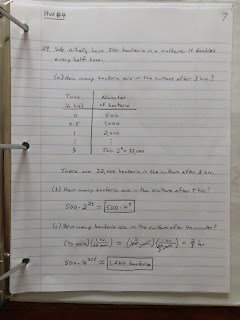 HW #4
7
29. We initially have 500 bacteria in a culture. It doubles
every half hour.
(a) How many bacteria are in the culture after 3 hr.?
Time Number
(in hr) of bacteria
0 500
0.5 1,000
1 2,000
⋮ ⋮
3 500·2⁶ = 32,000
There are 32,000 bacteria in the culture after 3 hr.
(b) How many bacteria are in the culture after t hr.?
500·2²ᵗ = 500·4ᵗ
(c) How many bacteria are in the culture after 40 minutes?
(40 min)(1 hr / 60 min) = = 2/3 hr
500·4^(2/3) ≈ 1,260 bacteria